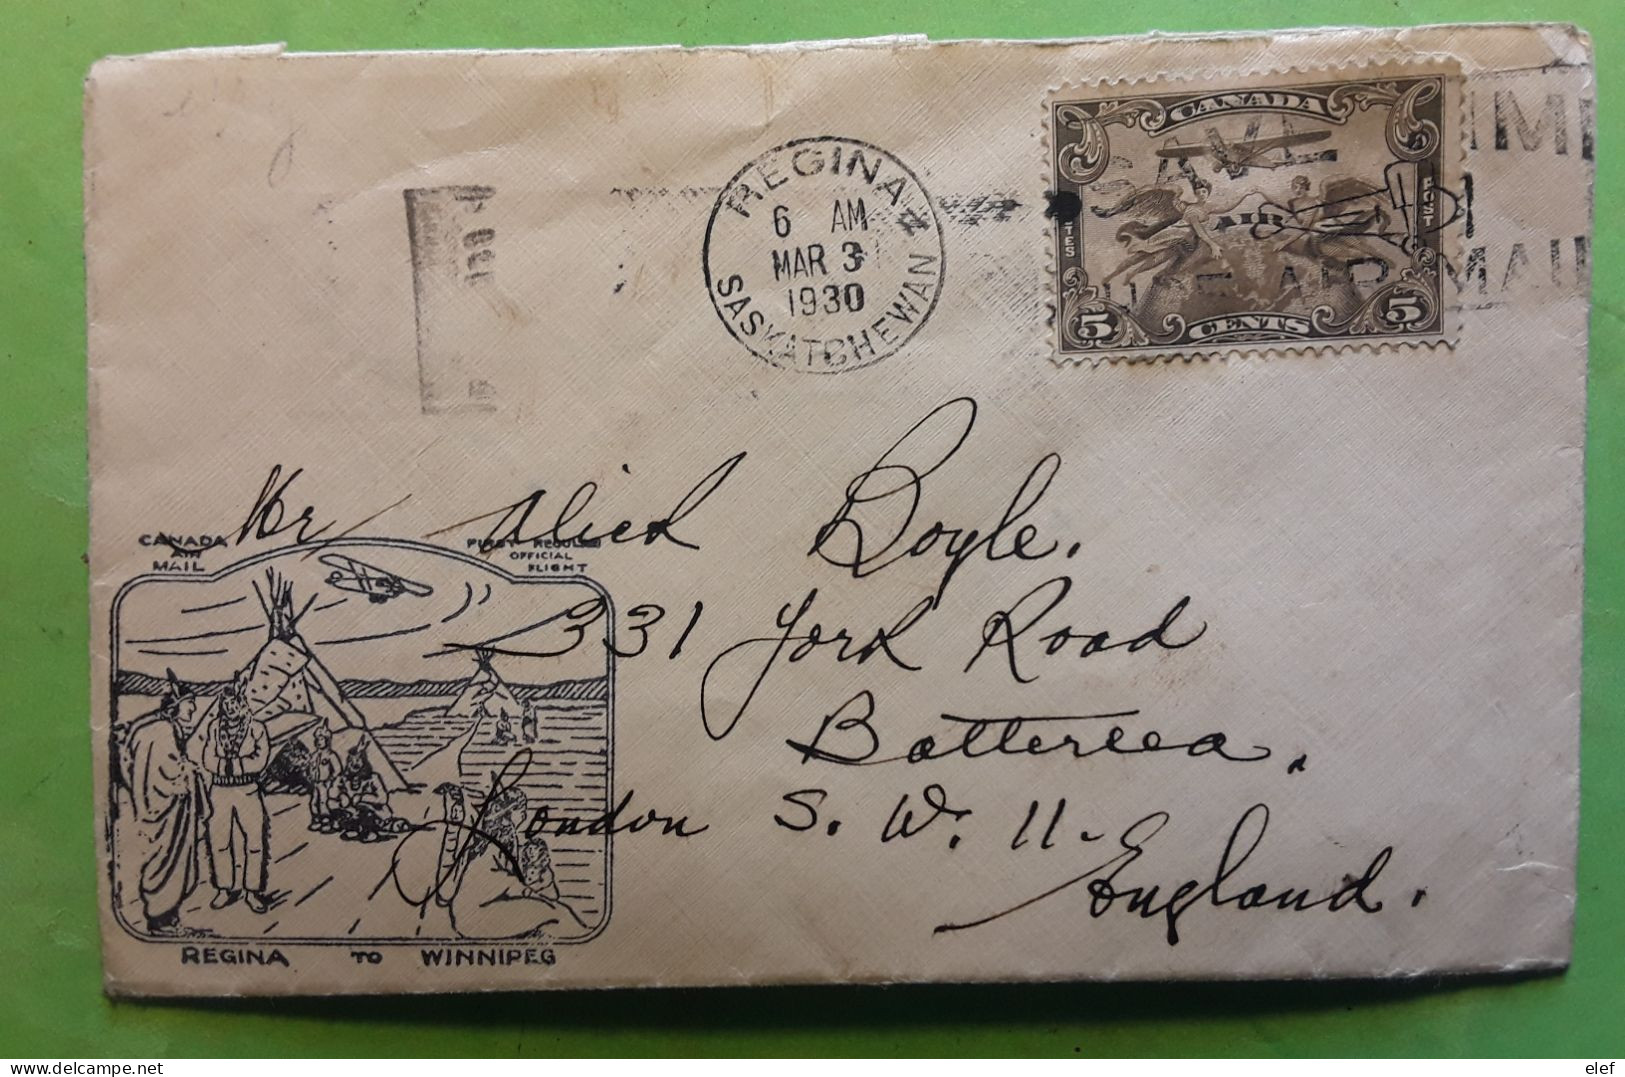 CANADA
5 5
AIR
POSTES POST
5 CENTS 5
SAVE TIME
USE AIR MAIL
REGINA
6 AM
MAR 3
1930
SASKATCHEWAN
Mr Boyle.
331 York Road
Battersea.
London S. W. 11-
England.
CANADA
AIR
MAIL
FIRST REGULAR
OFFICIAL
FLIGHT
REGINA TO WINNIPEG
elef
delcampe.net